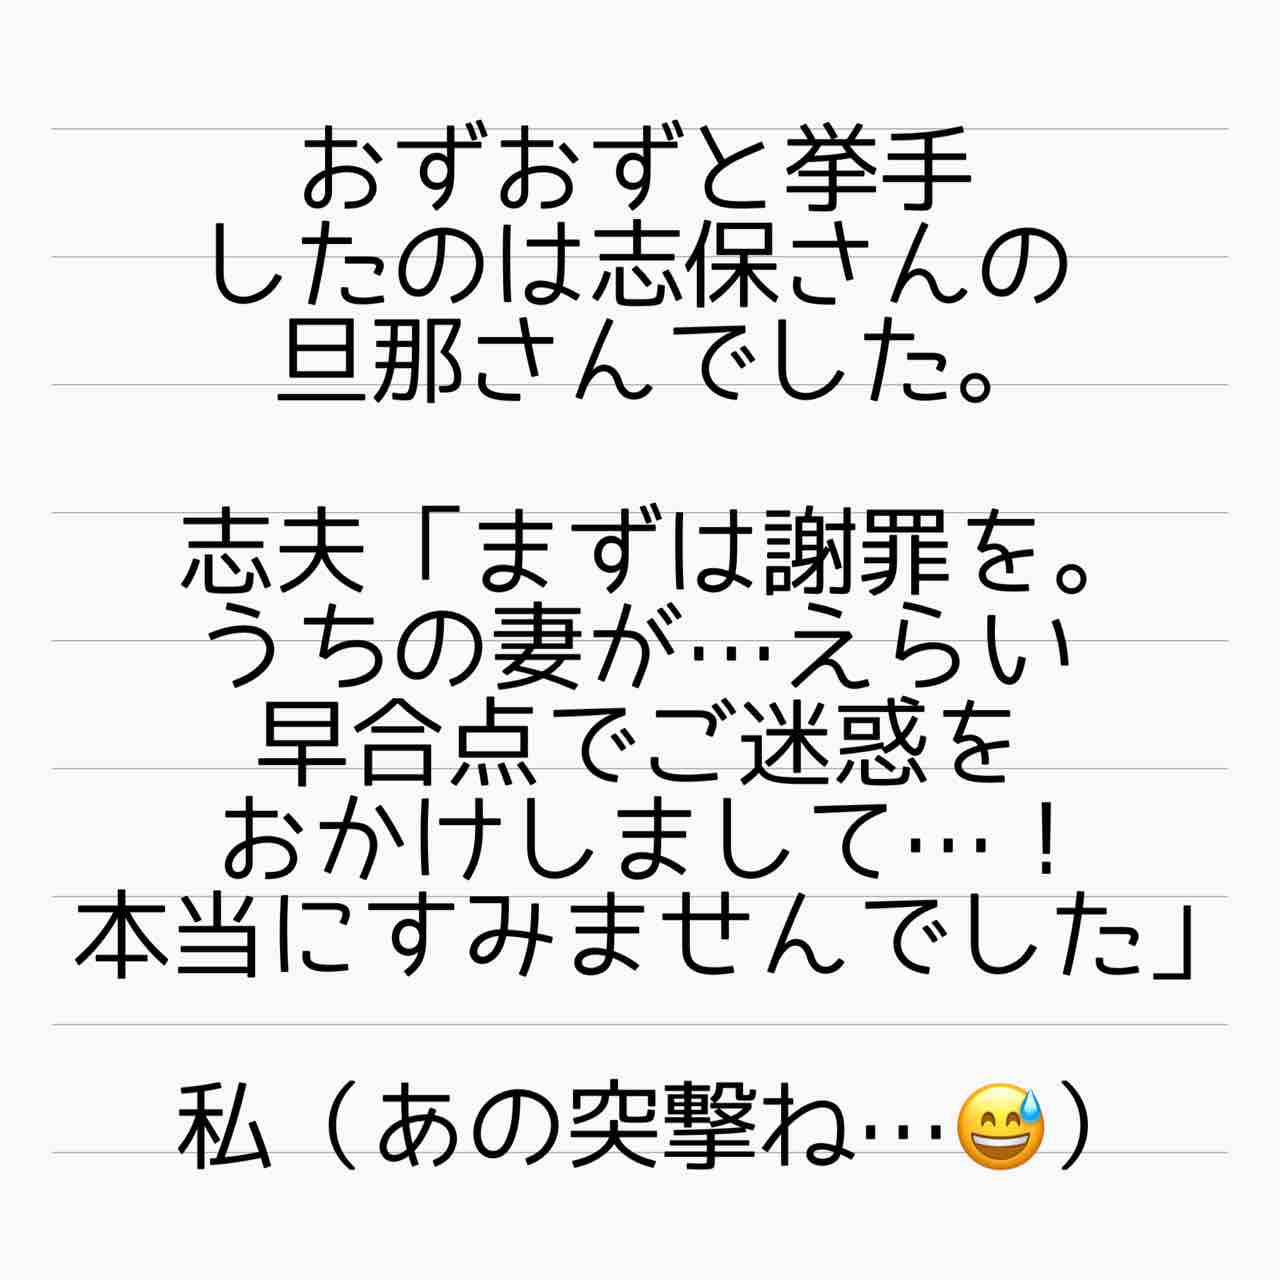 おずおずと挙手
したのは志保さんの
旦那さんでした。
志夫「まずは謝罪を。
うちの妻が…えらい
早合点でご迷惑を
おかけしまして…！
本当にすみませんでした」
私（あの突撃ね…😅）